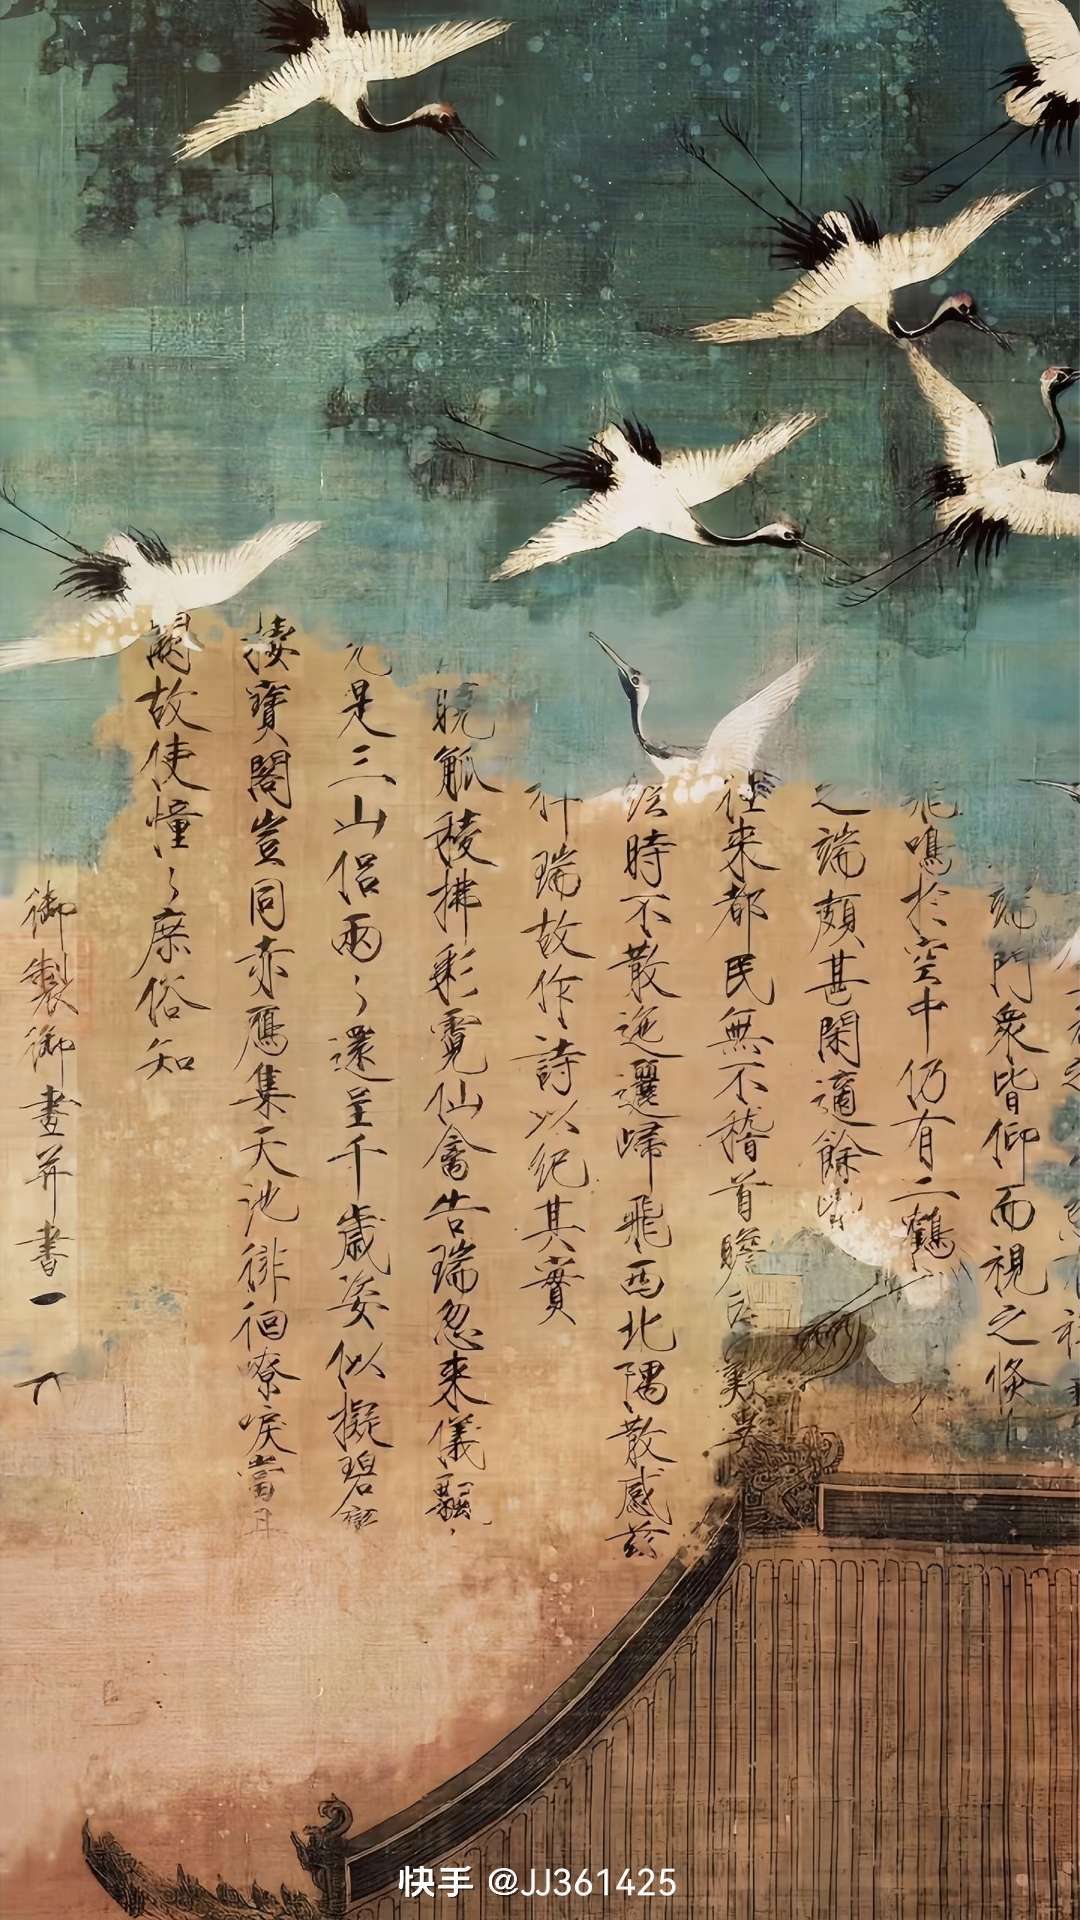 端門衆皆仰而視之倏
飛鳴於空中仍有二鶴
之端頗甚閑適餘皆
往来都民無不稽首瞻
時不散迤邐歸飛西北隅散感茲
瑞故作詩以紀其實
曉觚稜拂彩霓仙禽告瑞忽来儀飄
元是三山侶兩〻還呈千歲姿似擬碧鸞
棲寶閣豈同赤鴈集天池徘徊嘹唳當丹
闕故使憧〻庶俗知
御製御畫并書
快手 @JJ361425